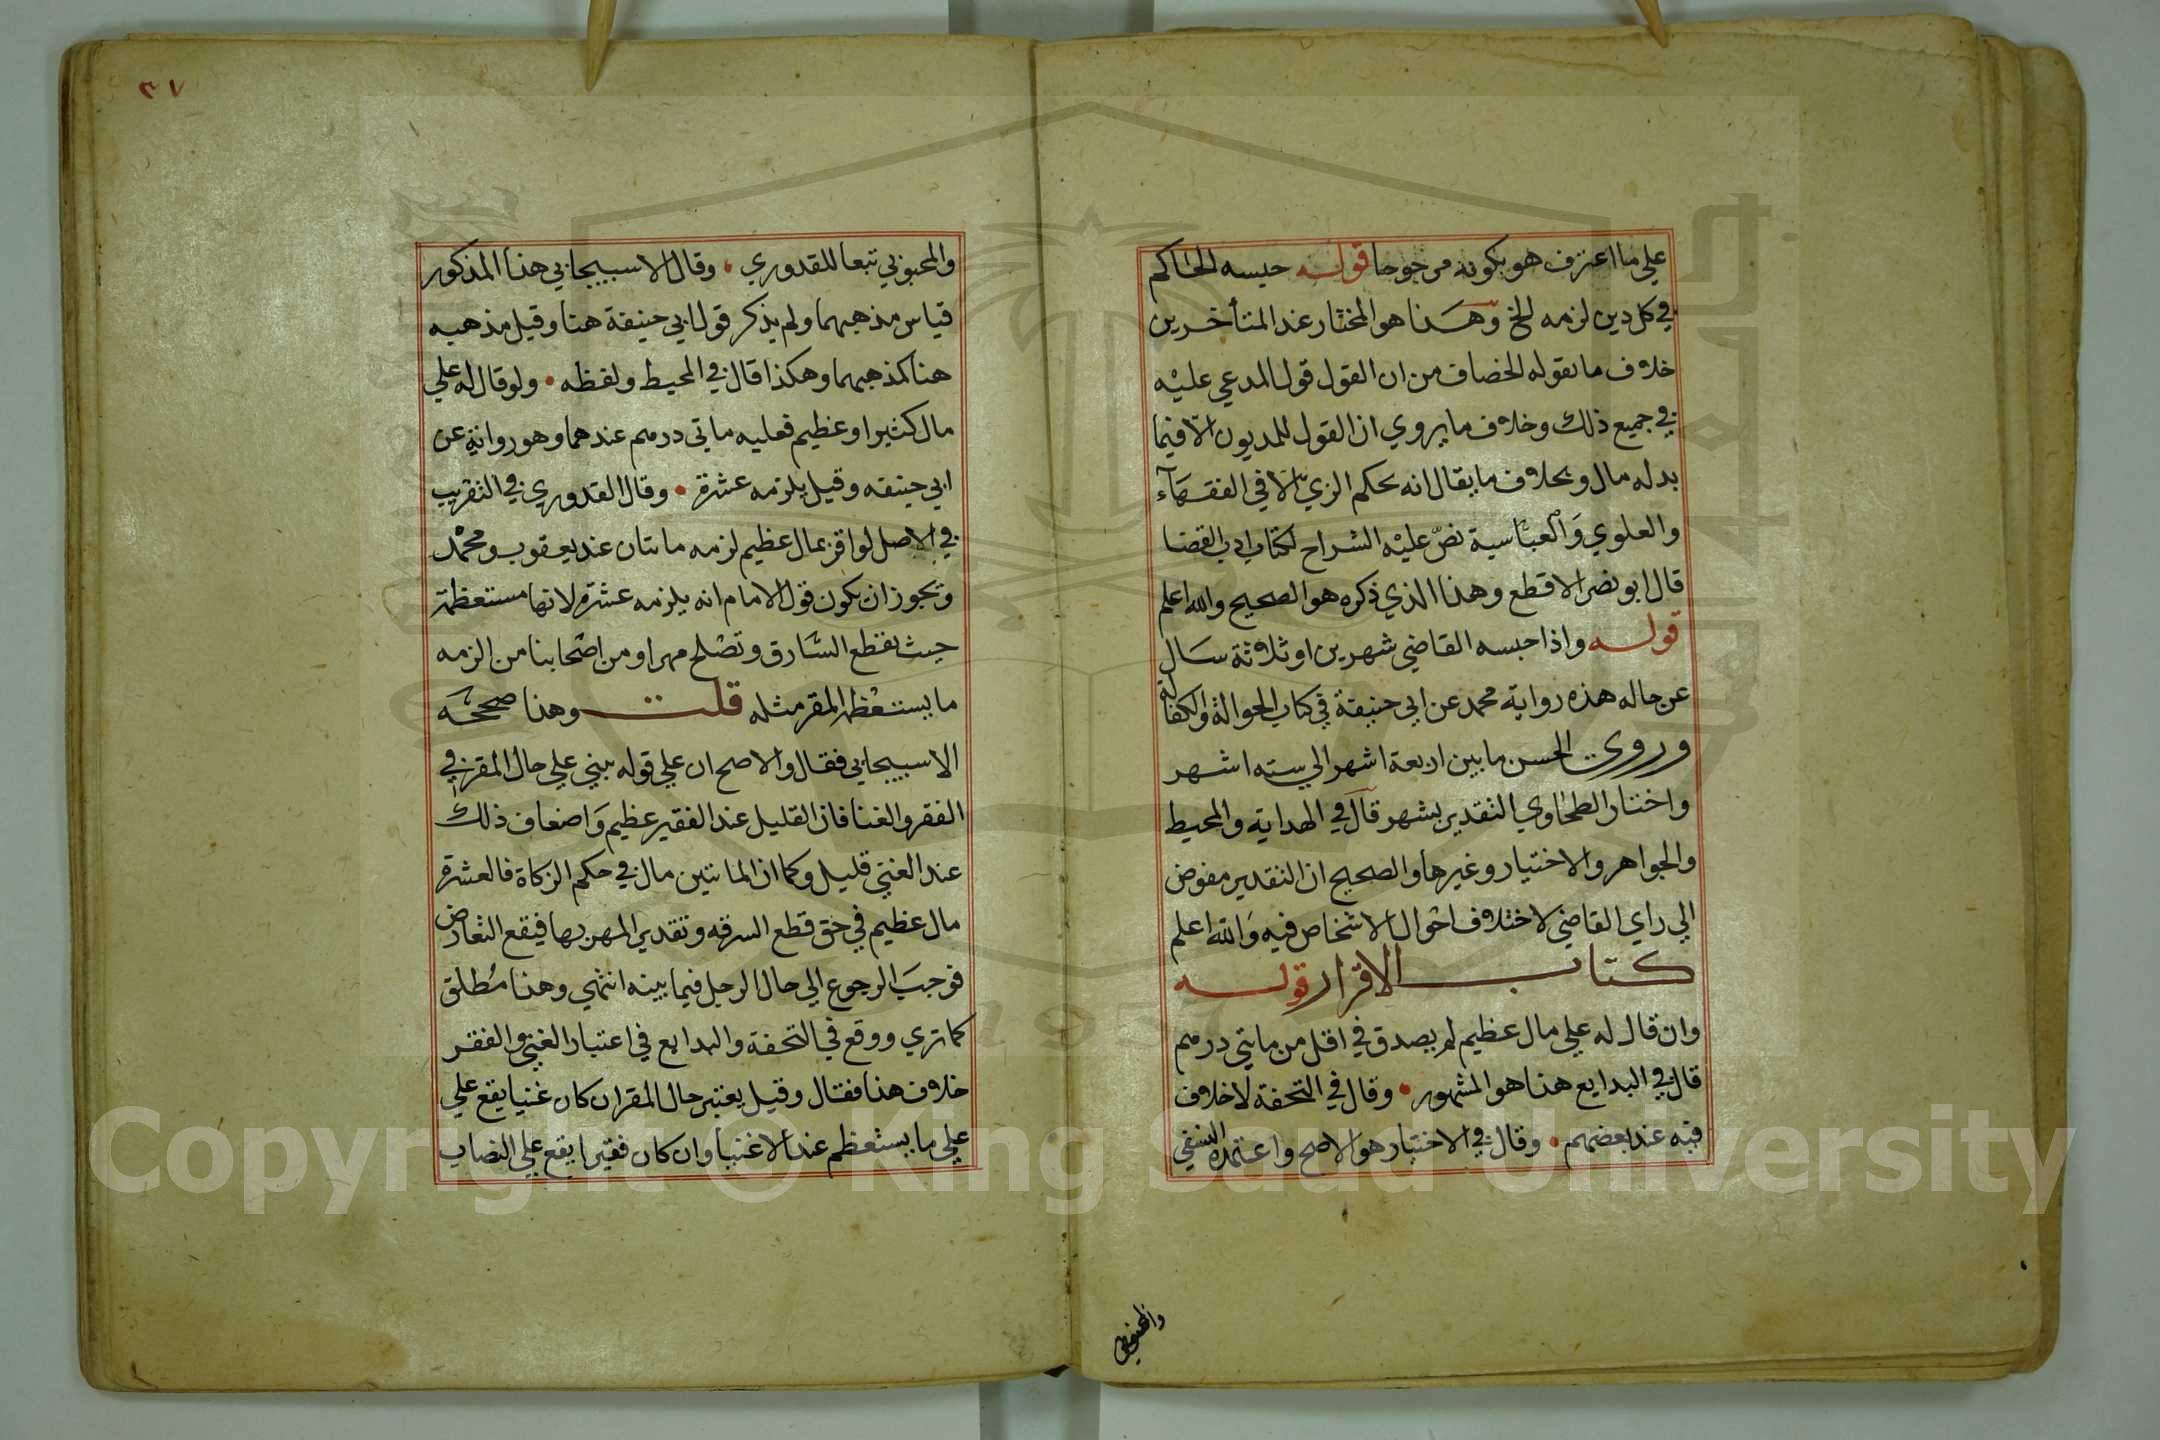 علي ما اعترف هو بكونه مرجوحا قوله حبسه الحاكم
في كل دين لزمه الخ وهذا هو المختار عند المتأخرين
خلاف ما نقوله الخصاف من ان القول قول المدعي عليه
في جميع ذلك وخلاف ما يروي ان القول للمديون الا فيما
بدله مال وبخلاف ما يقال انه يحكم الزي الا في الفقهاء
والعلوي والعباسية نص عليه الشراح لكتاب ادب القضا
قال ابو نصر الاقطع وهذا الذي ذكره هو الصحيح والله اعلم
قوله واذا حبسه القاضي شهرين او ثلاثة سال
عن حاله هذه رواية محمد عن ابي حنيفة في كتاب الحوالة والكفالة
وروي الحسن ما بين اربعة اشهر الي سته اشهر
واختار الطحاوي التقدير بشهر قال في الهداية والمحيط
والجواهر والاختيار وغيرها والصحيح ان التقدير مفوض
الي راي القاضي لاختلاف احوال الاشخاص فيه والله اعلم
كتاب الاقرار قوله
وان قال له علي مال عظيم لم يصدق في اقل من مايتي درهم
قال في البدايع هذا هو المشهور وقال في التحفة لا خلاف
فيه عند بعضهم وقال في الاختيار هو الاصح واعتمده النسفي
٣٧
والمحبوبي تبعا للقدوري وقال الاسبيجابي هذا المذكور
قياس مذهبهما ولم يذكر قول ابي حنيفة هنا وقيل مذهبه
هنا كمذهبهما وهكذا قال في المحيط ولفظه ولو قال له علي
مال كثير او عظيم فعليه ماتي درهم عندهما وهو رواية عن
ابي حنيفه وقيل يلزمه عشرة وقال القدوري في التقريب
في الاصل لو اقر بمال عظيم لزمه ماتان عند يعقوب ومحمد
ويجوز ان يكون قول الامام انه يلزمه عشرة لانها مستعظمة
حيث يقطع السارق وتصلح مهرا ومن اصحابنا من الزمه
ما يستعظم المقر مثله قلت وهذا صححه
الاسبيجابي فقال والاصح ان علي قوله يبني علي حال المقر في
الفقر والغنا فان القليل عند الفقير عظيم واضعاف ذلك
عند الغني قليل وكما ان الماتين مال في حكم الزكاة فالعشرة
مال عظيم في حق قطع السرقه وتقدير المهر بها فيقع التعارض
فوجب الرجوع الي حال الرجل فيما بينه انتهي وهذا مطلق
كما تري ووقع في التحفة والبدايع في اعتبار الغني والفقر
خلاف هذا فقال وقيل يعتبر حال المقر ان كان غنيا يقع علي
علي ما يستعظم عند الاغنيا وان كان فقيرا يقع علي النصاب
Copyright © King Saud University